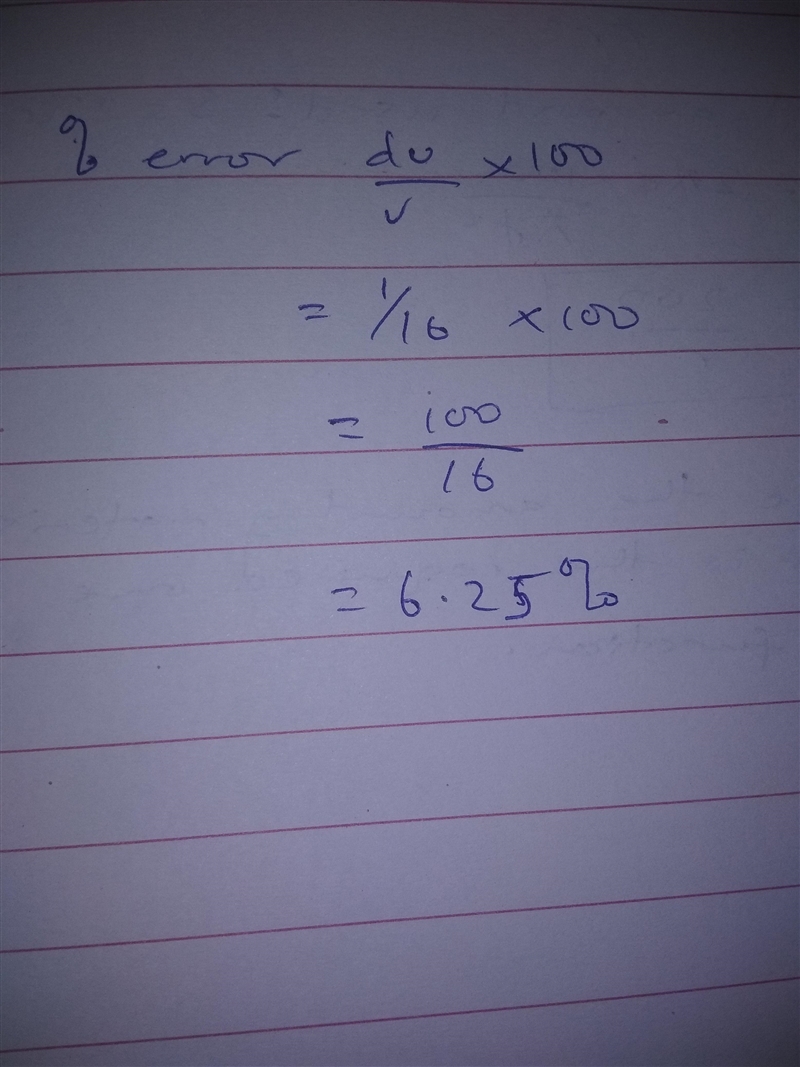 % error dv/v ×100
= 1/16 ×100
= 100/16
= 6.25%